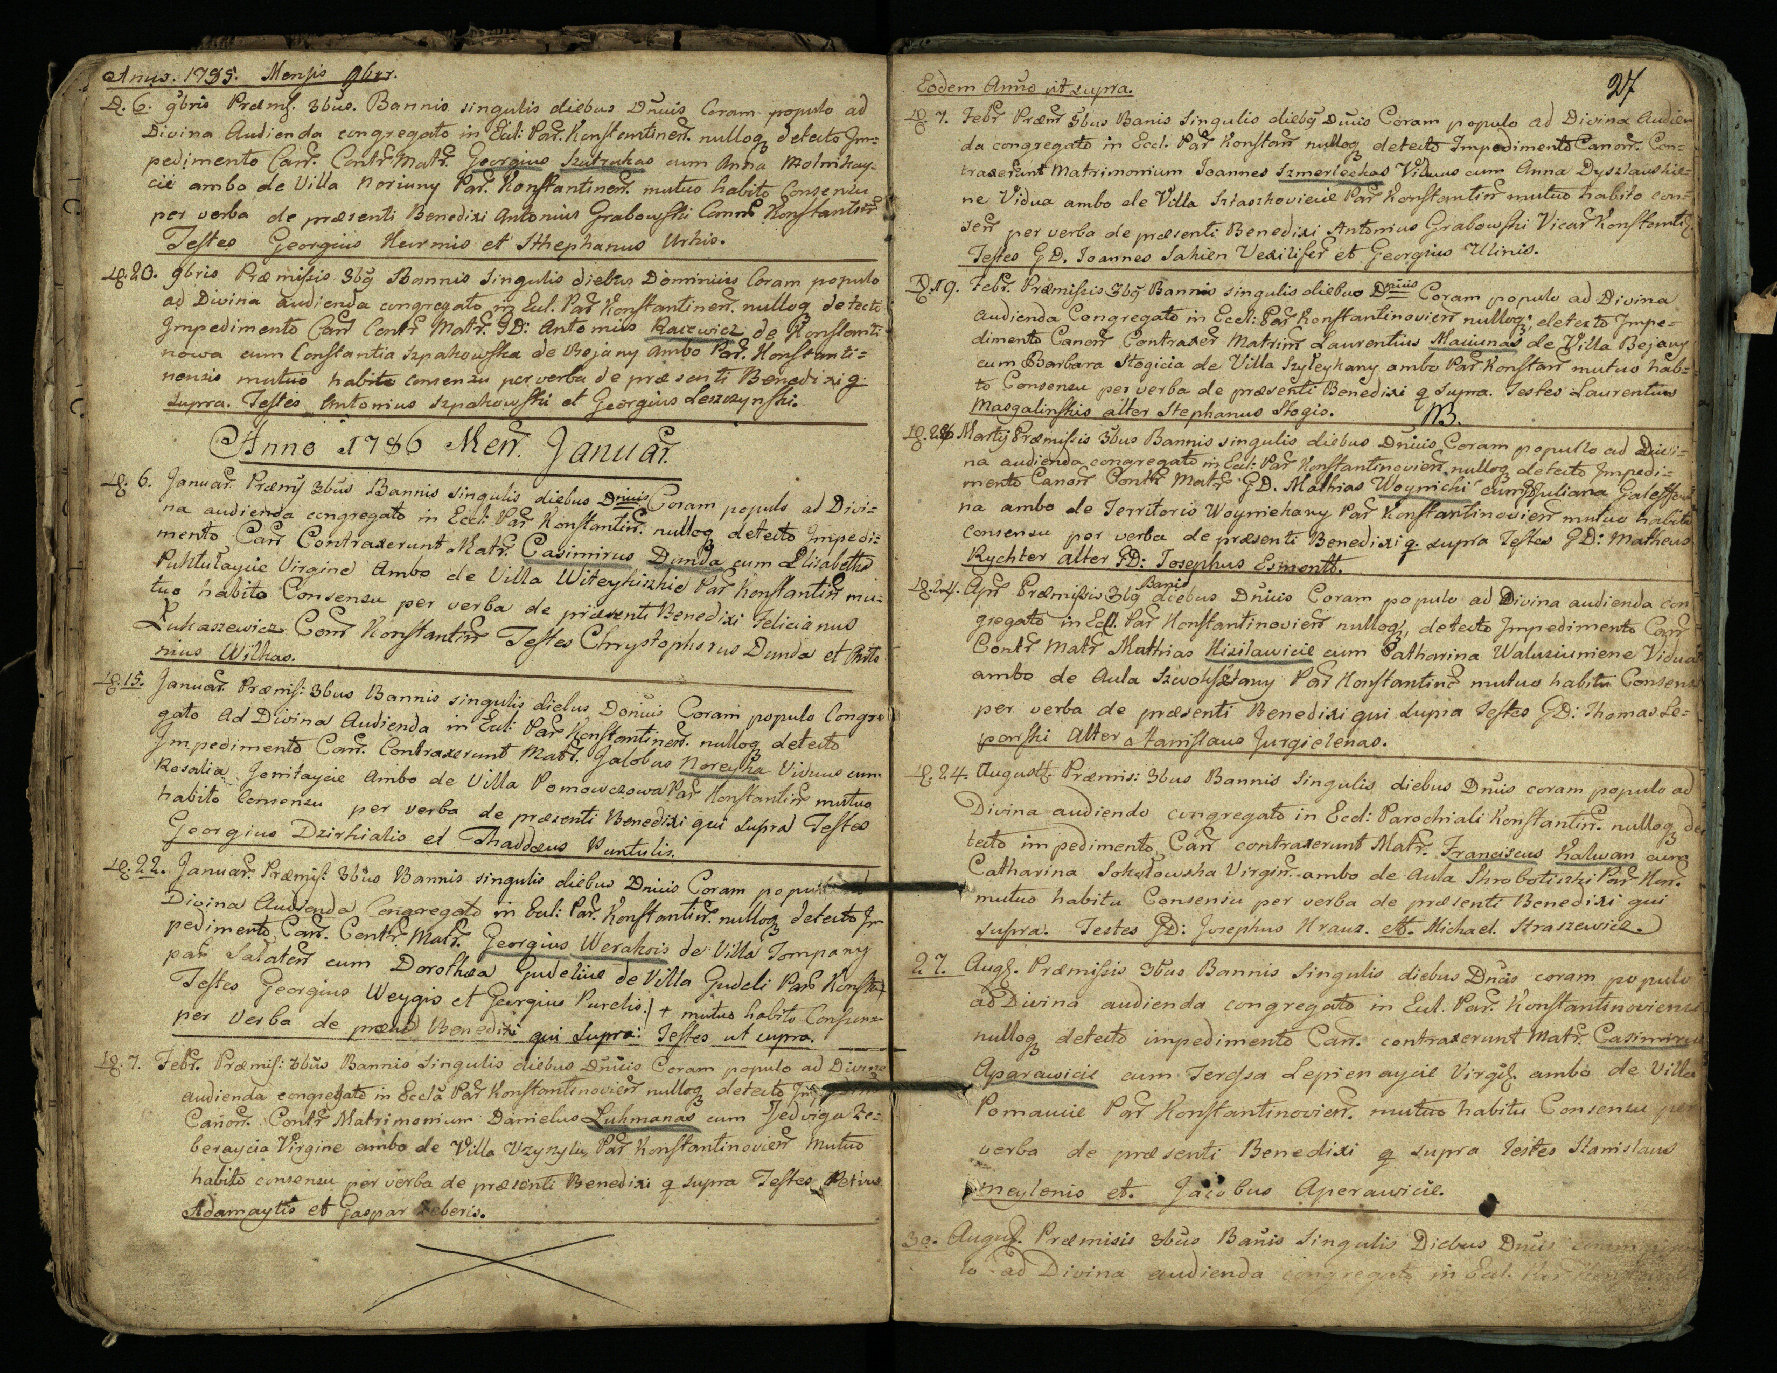 Anno. 1785. Mensis 9bris.
D. 6. 9bris Præmis. 3bus. Bannis singulis diebus Dnuis Coram populo ad
Divina Audienda congregato in Ecl: Par. Konstantinen. nulloq detecto Im=
pedimento Can. Contr Matr. Georgius Szutrukas cum Anna
cie ambo de Villa Noriuny Par. Konstantinen. mutuo habito Consensu
per verba de præsenti Benedixi Antonius Grabowski Comm Konstantin
Testes Georgius Kurmis et Sthephanus Urkis.
D. 20. 9bris Præmissis 3bq Bannis Singulis diebus Dominicis Coram populo
ad Divina audienda congregato in Ecl. Par Konstantinen. nulloq detecto
Impedimento Can Contr Matr. GD: Antonius Racewicz de Konstanti
nowa cum Constantia Szpakowska de Rojany ambo Par. Konstanti=
nensis mutuo habito consensu per verba de præsenti Benedixi q
supra. Testes Antonius Szpakowski et Georgius Leszczynski.
Anno 1786 Men. Januar.
D. 6. Januar. Præmis 3bus Bannis singulis diebus Dnuis Coram populo ad Divi=
na audienda congregato in Eccl: Par Konstantin. nulloq detecto Impedi=
mento Can Contraxerunt Matr. Casimirus Dunda cum Elizabetha
Puktutaycie Virgine Ambo de Villa Witeykiszkie Par Konstantin mu=
tuo habito Consensu per verba de præsenti Benedixi Felicianus
Łukaszewicz Com Konstantin Testes Chrystophorus Dunda et Anto
nius Wilkas.
D. 15. Januar. Præmis: 3bus Bannis singulis diebus Donuis Coram populo Congre
gato ad Divina Audienda in Ecl: Par Konstantinen. nulloq detecto
Impedimento Can. Contraxerunt Matr. Jacobus Noreyka Viduus cum
Rosalia Jonitaycie Ambo de Villa Pomowczowa Par Konstantin mutuo
habito Consensu per verba de præsenti Benedixi qui supra Testes
Georgius Dzirkialis et Thaddæus Runtulis.
D. 22. Januar. Præmis: 3bus Bannis singulis diebus Dnuis Coram populo
Divina Audienda Congregato in Ecl: Par. Konstantin. nulloq detecto Im
pedimento Can. Contr. Matr. Georgius Werakois de Villa Tompany
par Salaten cum Dorothea Gudeliue de Villa Gudeli Par Konstan
Testes Georgius Weygis et Georgius Purelis. + mutuo habito Consensu
per verba de præsenti Benedixi qui supra: Testes ut supra.
D. 7. Febr. Præmis: 3bus Bannis Singulis diebus Dnuis Coram populo ad Divina
audienda congregato in Eccla Par Konstantinovien nulloq detecto
Canon. Contr Matrimonium Danielus Luhmanas cum Hedviga Ze=
beraycia Virgine ambo de Villa Uzyzylu Par Konstantinovien Mutuo
habito consensu per verba de præsenti Benedixi q supra Testes Petrus
Adamaytis et Gaspar Zeberis.
Eodem Anno ut supra.
27
D. 7. Febr Præm 3bus Banis Singulis diebq Dnuis Coram populo ad Divina Audien
da congregato in Eccl. Par Konstan nulloq detecto Impedimento Canon. Con=
traxerunt Matrimonium Joannes Szmorleckas Viduus cum Anna Dyszlauskie=
ne Vidua ambo de Villa Staszkoviecie Par Konstantin mutuo habito con=
sen per verba de præsenti Benedixi Antonius Grabowski Vicar Konstanti
Testes GD. Joannes Sahien Vexilifer et Georgius Ulinis.
D. 19. Febr. Præmissis 3bq Bannis singulis diebus Dnuis Coram populo ad Divina
audienda Congregato in Eccl: Par Konstantinovien nulloq; detecto Impe=
dimento Canon Contraxer Matrim Laurentius Maciunas de Villa Bejany
cum Barbara Stogicia de Villa Szyleykany ambo Par Konstan mutuo hab=
to Consensu per verba de præsenti Benedixi q supra. Testes Laurentius
Masgalinskis alter Stephanus Stogis. NB.
D. 28 Martij Præmissis 3bus Bannis singulis diebus Dnuis Coram populo ad Divi=
na audienda congregato in Ecl: Par Konstantinovien nulloq detecto Impedi=
mento Canon Contr Matr GD. Mathias Woynicki cum Juliana
na ambo de Territorio Woyniekany Par Konstantinovien mutuo habito
consensu per verba de præsenti Benedixi q supra Testes GD: Matheus
Rychter alter GD: Josephus Esmontt.
D. 24. Apr Præmissis 3bq Banis diebus Dnuis Coram populo ad Divina audienda con
gregato in Eccl. Par Konstantinovien nulloq, detecto Impedimento Can
Contr Matr Mathias Kisilawicie cum Catharina Walusiuniene Vidua
ambo de Aula Szwoksztany Par Konstantin mutuo habitu Consensu
per verba de præsenti Benedixi qui supra Testes GD: Thomas Le=
parski alter Stanislaus Jurgielenas.
D. 24. Augusti. Præmis: 3bus Bannis Singulis diebus Dnuis coram populo ad
Divina audiendo congregato in Eccl: Parochiali Konstantin. nulloq de
tecto impedimento Can contraxerunt Matr. Franciscus Kalwan cum
Catharina Sokołowska Virgin. ambo de Aula Skrobotiszki Par. Kon.
mutuo habitu Consensu per verba de præsenti Benedixi qui
supra. Testes GD: Josephus Kraus. et. Michael Straszewicz.
27. Augs. Præmissis 3bus Bannis Singulis diebus Dnuis coram populo
ad Divina audienda congregato in Ecl. Par. Konstantinoviensi
nulloq detecto impedimento Can. contraxerunt Matr. Casimirus
Aparawicie cum Teressa Lepienaycie Virgi. ambo de Villa
Pomawie Par Konstantinovien. mutuo habitu Consensu per
verba de præsenti Benedixi q supra Testes Stanislaus
Meylenis et. Jacobus Aperawicie.
30. Augus. Præmisis 3bus Banis Singulis Diebus Dnuis coram popu
lo ad Divina audienda congregato in Ecl. Par